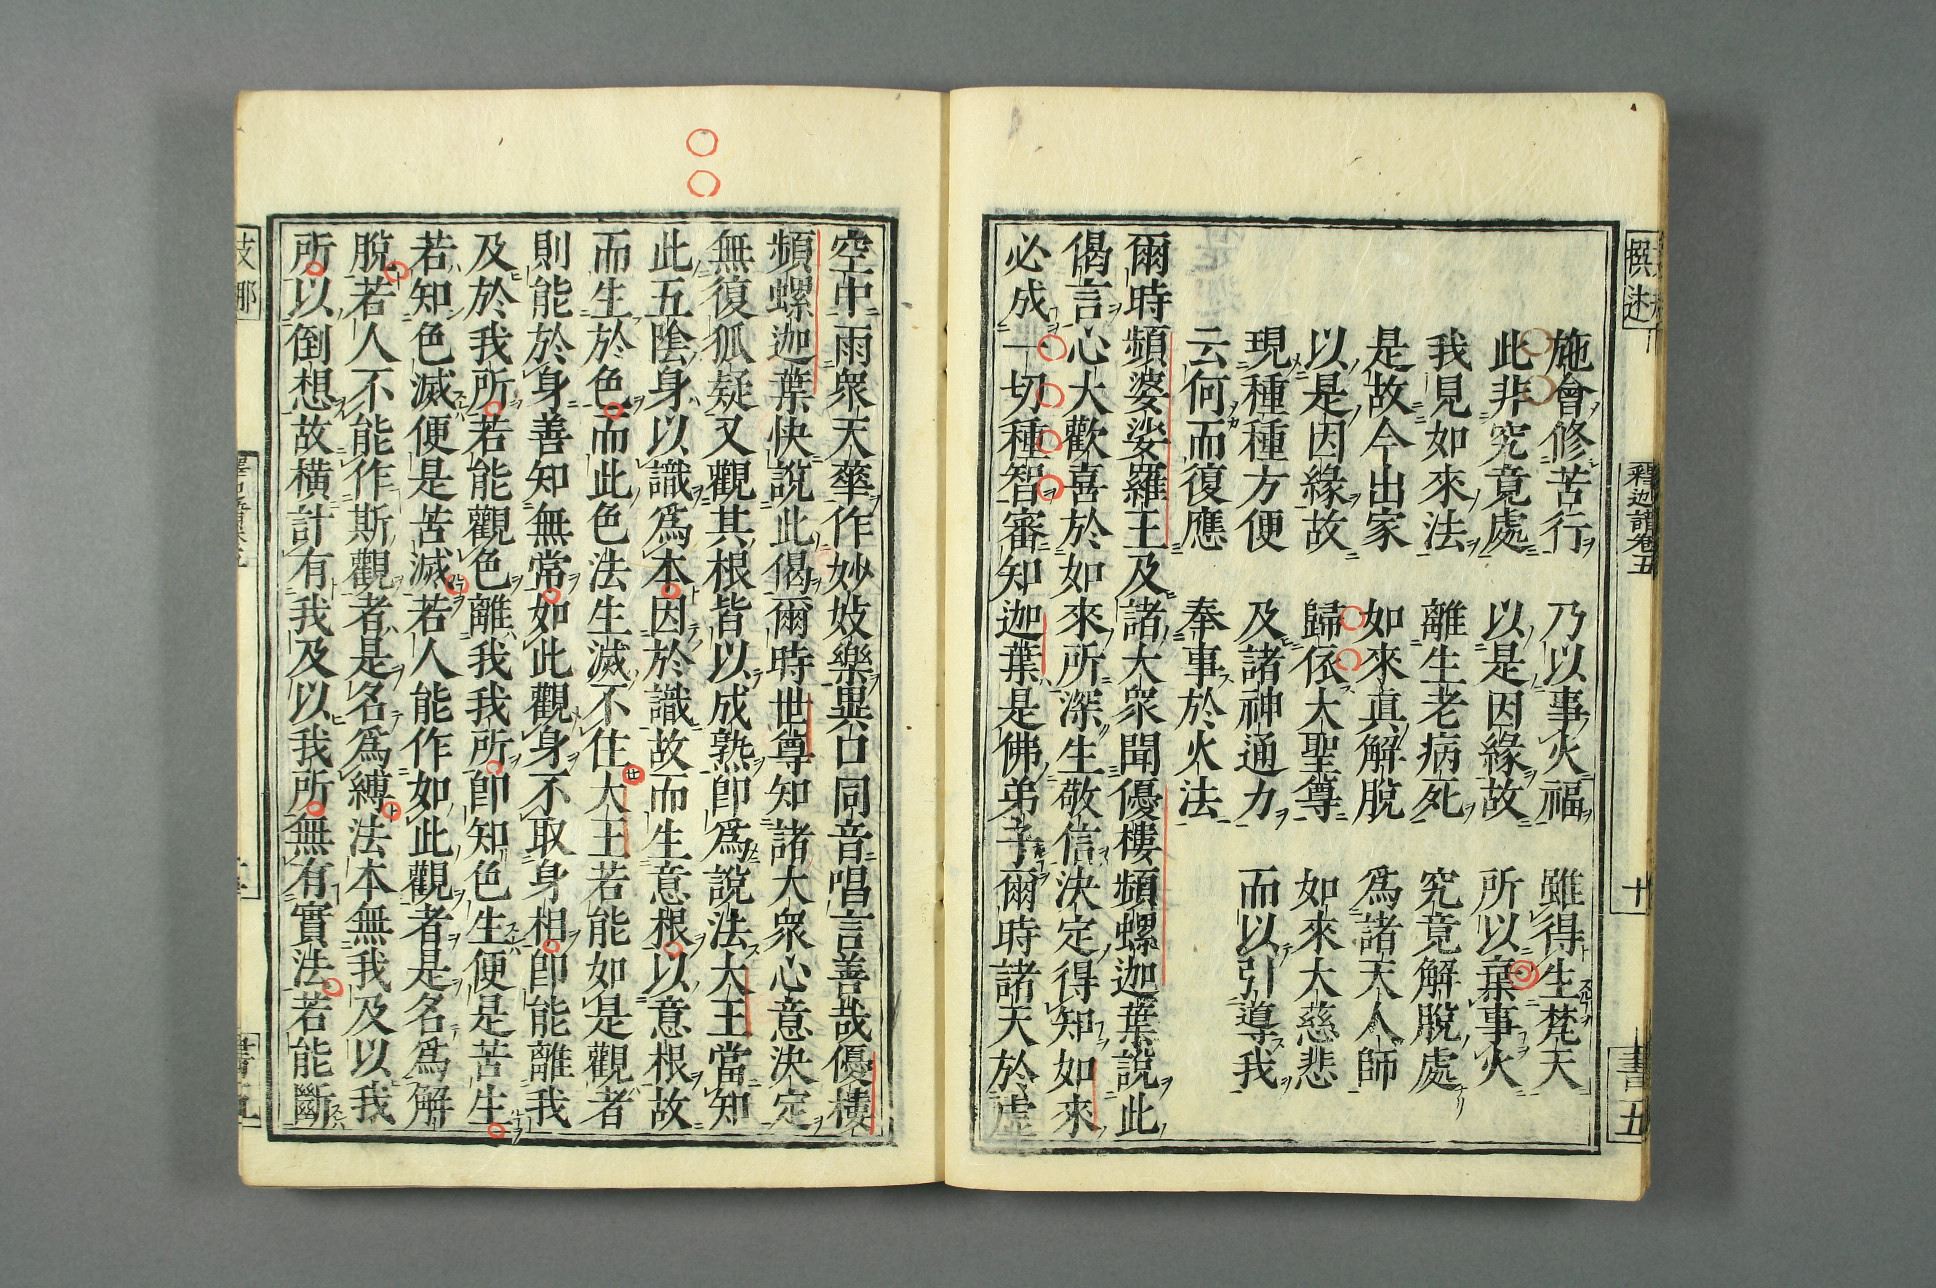 撰述
釋迦譜卷五
十
書五
施會修苦行 乃以事火福 雖得生梵天
此非究竟處 以是因緣故 所以棄事火
我見如來法 離生老病死 究竟解脫處
是故今出家 如來真解脫 為諸天人師
以是因緣故 歸依大聖尊 如來大慈悲
現種種方便 及諸神通力 而以引導我
云何而復應 奉事於火法
爾時頻婆娑羅王及諸大眾聞優樓頻螺迦葉說此
偈言心大歡喜於如來所深生敬信決定得知如來
必成一切種智審知迦葉是佛弟子爾時諸天於虛
空中雨眾天華作妙妓樂異口同音唱言善哉優樓
頻螺迦葉快說此偈爾時世尊知諸大眾心意決定
無復狐疑又觀其根皆以成熟即為說法大王當知
此五陰身以識為本因於識故而生意根以意根故
而生於色而此色法生滅不住大王若能如是觀者
則能於身善知無常如此觀身不取身相即能離我
及於我所若能觀色離我我所即知色生便是苦生
若知色滅便是苦滅若人能作如此觀者是名為解
脫若人不能作斯觀者是名為縛法本無我及以我
所以倒想故橫計有我及以我所無有實法若能斷